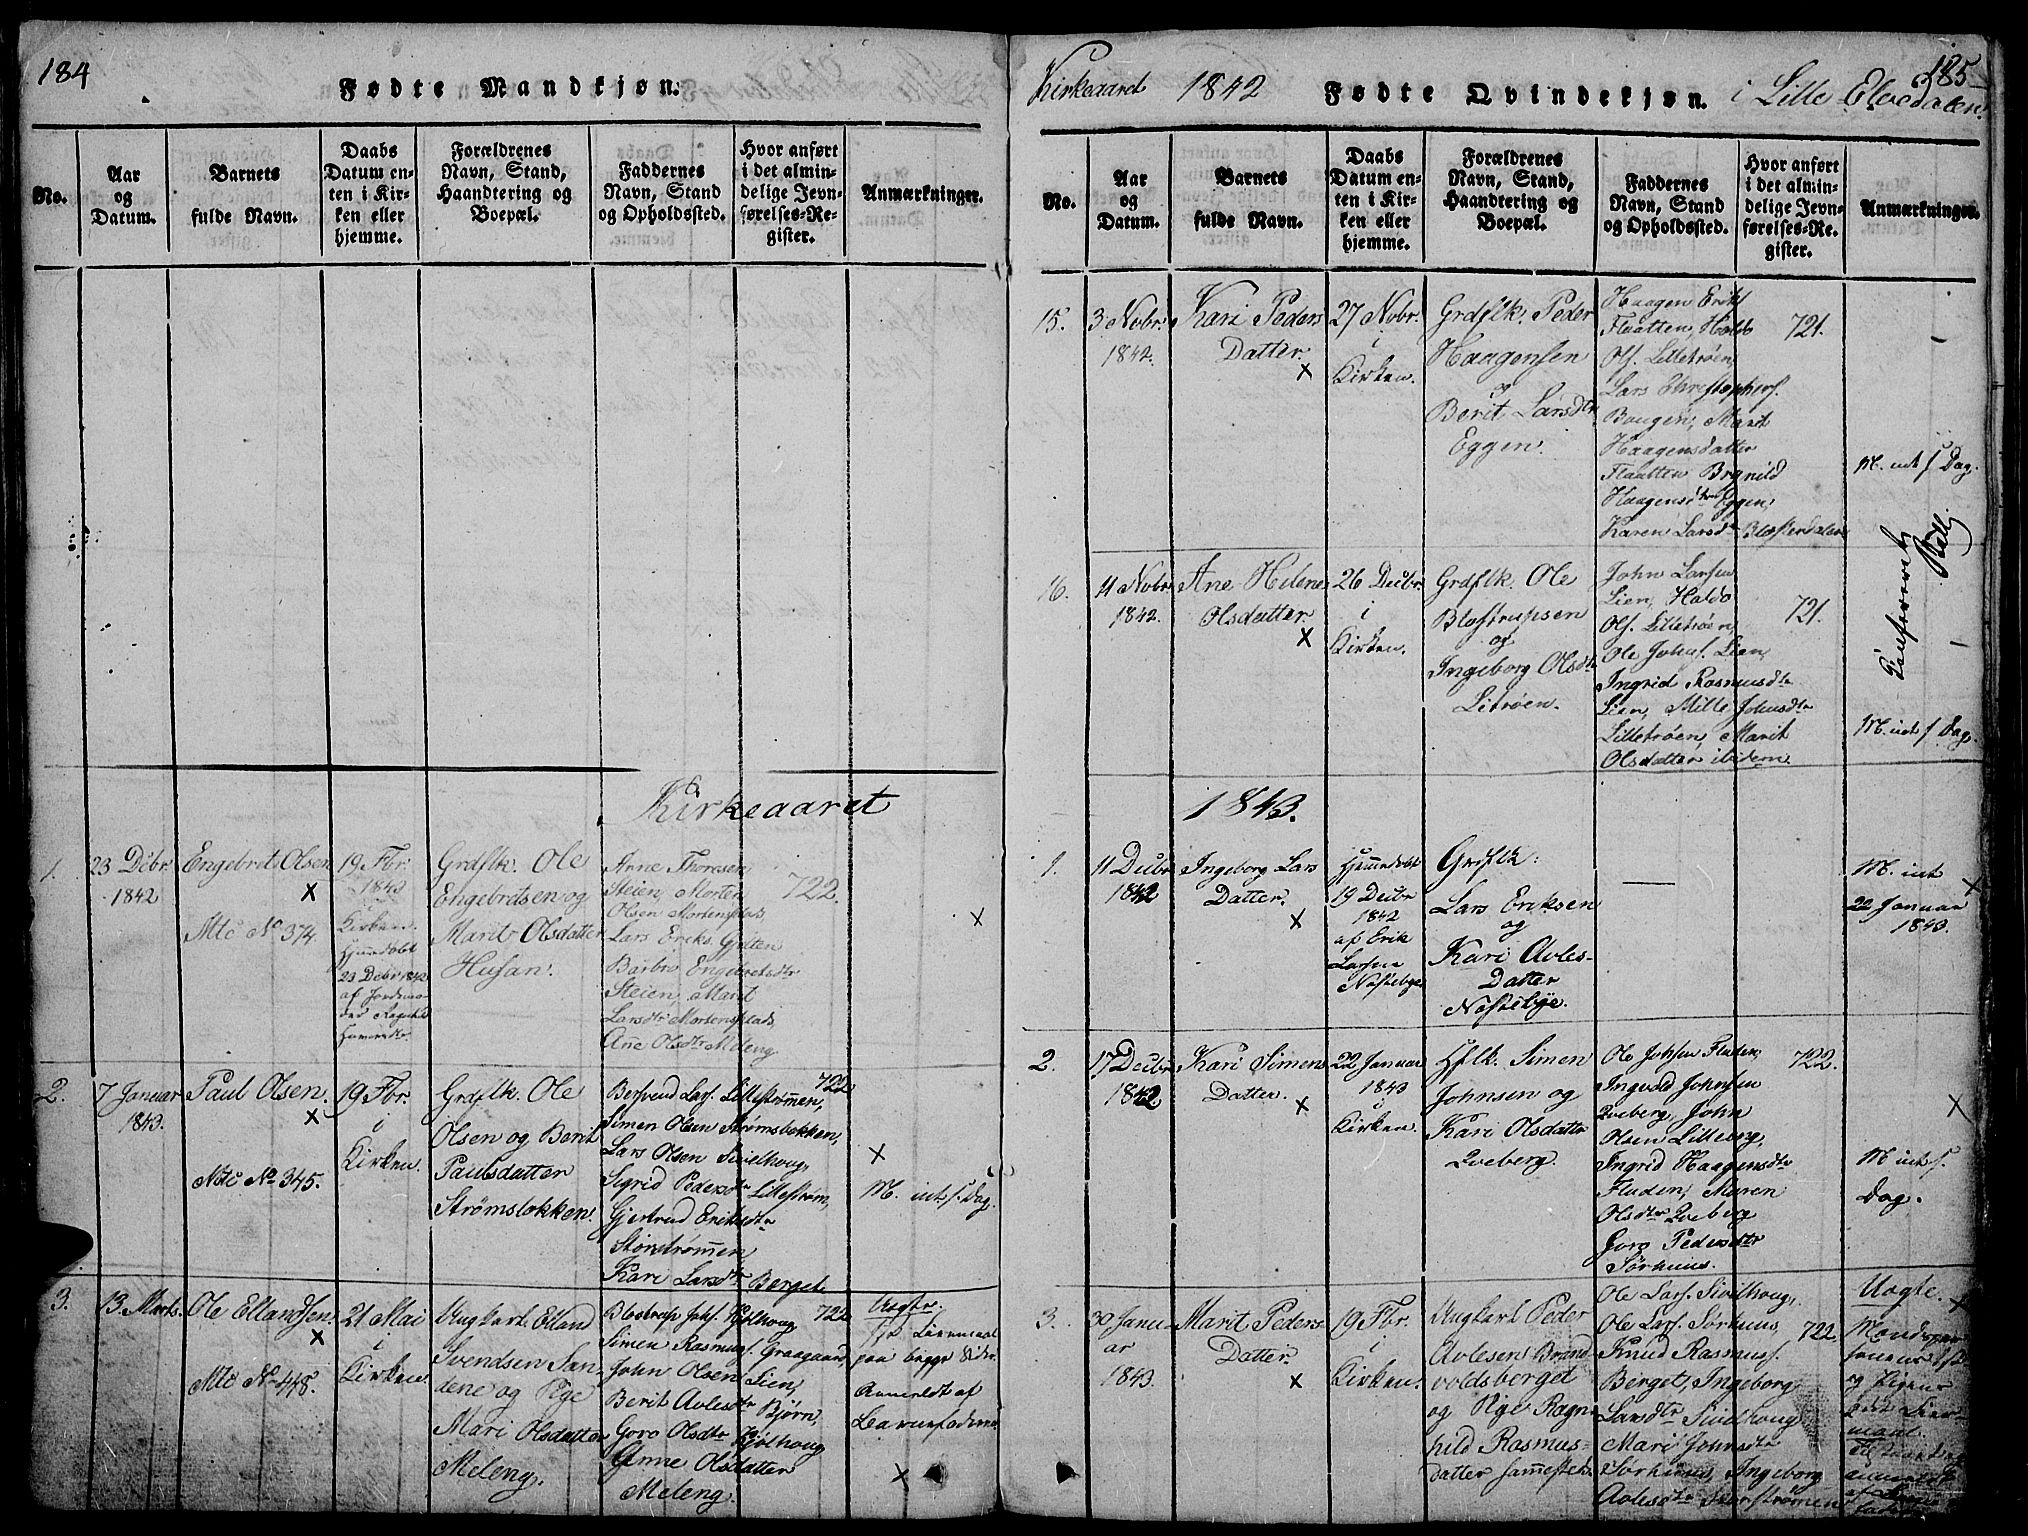 184
Fødte Mandkjøn.
No.
Aar
og
Datum.
Barnets
fulde Navn.
Daabs
Datum en-
ten i Kir-
ken eller
hjemme.
Forældrenes
Navn, Stand,
Haandtering og
Boepæl.
Faddernes
Navn, Stand
og Opholdssted.
Hvor anført
i det almin-
delige Jevn-
førelses-Re-
gister.
Anmærkninger.
Kirkeaaret
1.
23 Decbr
1842
Engebret Olsen
×
Mtc No 374.
19 Fbr.
1843
i
Kirken.
Hjemedøbt
23 Debr 1842
af Jordemo-
der Ragnhild
Grdflk. Ole
Engebretsen og
Marit Olsdatter
Husan.
Anne Thoresen
Steien, Morten
Olsen Mortensplads,
Lars Eriks. Gjelten
Barbro Engebretsdtr
Steien, Marit
Larsdtr Mortensplads,
Ane Olsdtr Meleng
722.
×
2.
7 Januar
1843.
Paul Olsen.
×
Mtc No 345.
19 Fbr.
i
Kirken.
Grdflk. Ole
Olsen og Berit
Paulsdatter
Strømsløkken.
Bersvend Lars. Lillestrømmen,
Simen Olsen Strømsløkken,
Lars Olsen Sivilhoug,
Sigrid Pedersdtr Lillestrøm,
Gjertrud Eriksdtr
Storstrømmen
Kari Larsdtr Berget
722
×
M. int s. Dag.
3.
13 Marts.
Ole Ellandsen.
×
Mtc No 448.
21 Mai
i
Kirken.
Ungkarl Elland
Svendsen San-
dene og Pige
Mari Olsdatter
Meleng.
Blostrup Johs. Kjølhoug
Simen Rasmuss. Graagaard
John Olsen Lien,
Berit Avlesdtr Bjørn,
Goro Olsdtr Kjølhoug
Anne Olsdatter
Meleng.
722
Uægte.
1ste Leiermaal
paa begge Sider
Anmeldt af
Barnefaderen
×
Kirkeaaret 1842 Fødte Qvindekjøn. i Lille Elvedalen
185
No.
Aar
og
Datum.
Barnets
fulde Navn.
Daabs
Datum en-
ten i Kir-
ken eller
hjemme.
Forældrenes
Navn, Stand,
Haandtering og
Boepæl.
Faddernes
Navn, Stand
og Opholdssted.
Hvor anført
i det almin-
delige Jevn-
førelses-Re-
gister.
Anmærkninger.
15.
3 Nobr.
1842.
Kari Peders
Datter.
×
27 Nobr.
i
Kirken.
Grdflk. Peder
Haagensen
og
Berit Larsdtr
Eggen.
Haagen Eriks
Flaatten, Haldo
Ols. Lilletrøen,
Lars Christophers.
Bougen, Marit
Haagensdatter
Flaatten Brynild
Haagensdtr Eggen,
Karen Larsdtr
721.
M. int s. Dag.
16.
11 Nobr
1842.
Ane Helene
Olsdatter.
×
26 Decbr.
i
Kirken.
Grdflk. Ole
Blostrupsen
og
Ingeborg Olsdtr
Litrøen.
John Larsen
Lien, Haldo
Ols. Lilletrøen,
Ole Johns. Lien,
Ingrid Rasmusdtr
Lien, Mille Johnsdtr
Lilletrøen, Marit
Olsdatter ibidem.
721.
M. int s. Dag.
1843.
1.
11 Decbr
1842
Ingeborg Lars
Datter.
×
Hjemmedøbt
19 Decbr
1842
af Erik
Larsen
Nøstebye
Grdflk:
Lars Eriksen
og
Kari Avles-
Datter
Nøstebye.
M. int
22 Januar
1843.
×
2.
17 Decbr
1842
Kari Simen
Datter.
×
22 Januar
1843
i
Kirken.
Hflk. Simen
Johnsen og
Kari Olsdatter
Qveberg.
Ole Johsen Fluden,
Ingvald Johnsen
Qveberg, John
Olsen Lilleeng,
Ingrid Haagensdtr
Fluden, Maren
Olsdtr Qveberg
Goro Pedersdtr
Sørhuus.
722.
×
M int s.
Dag.
3.
30 Janu-
ar
1843.
Marit Peders
Datter.
×
19 Fbr.
i
Kirken.
Ungkarl Peder
Avlesen Brand
voldsberget
og Pige Ragn-
hild Rasmus-
datter sammesteds.
Ole Lars. Sivilhoug,
Ole Lars. Sørhuus,
Knud Rasmuss.
Berget, Ingeborg
Larsdtr Sivilhoug
Mari Johnsdtr
Sørhuus, Ingeborg
Avlesdtr Storstrømen
722
Uægte.
×